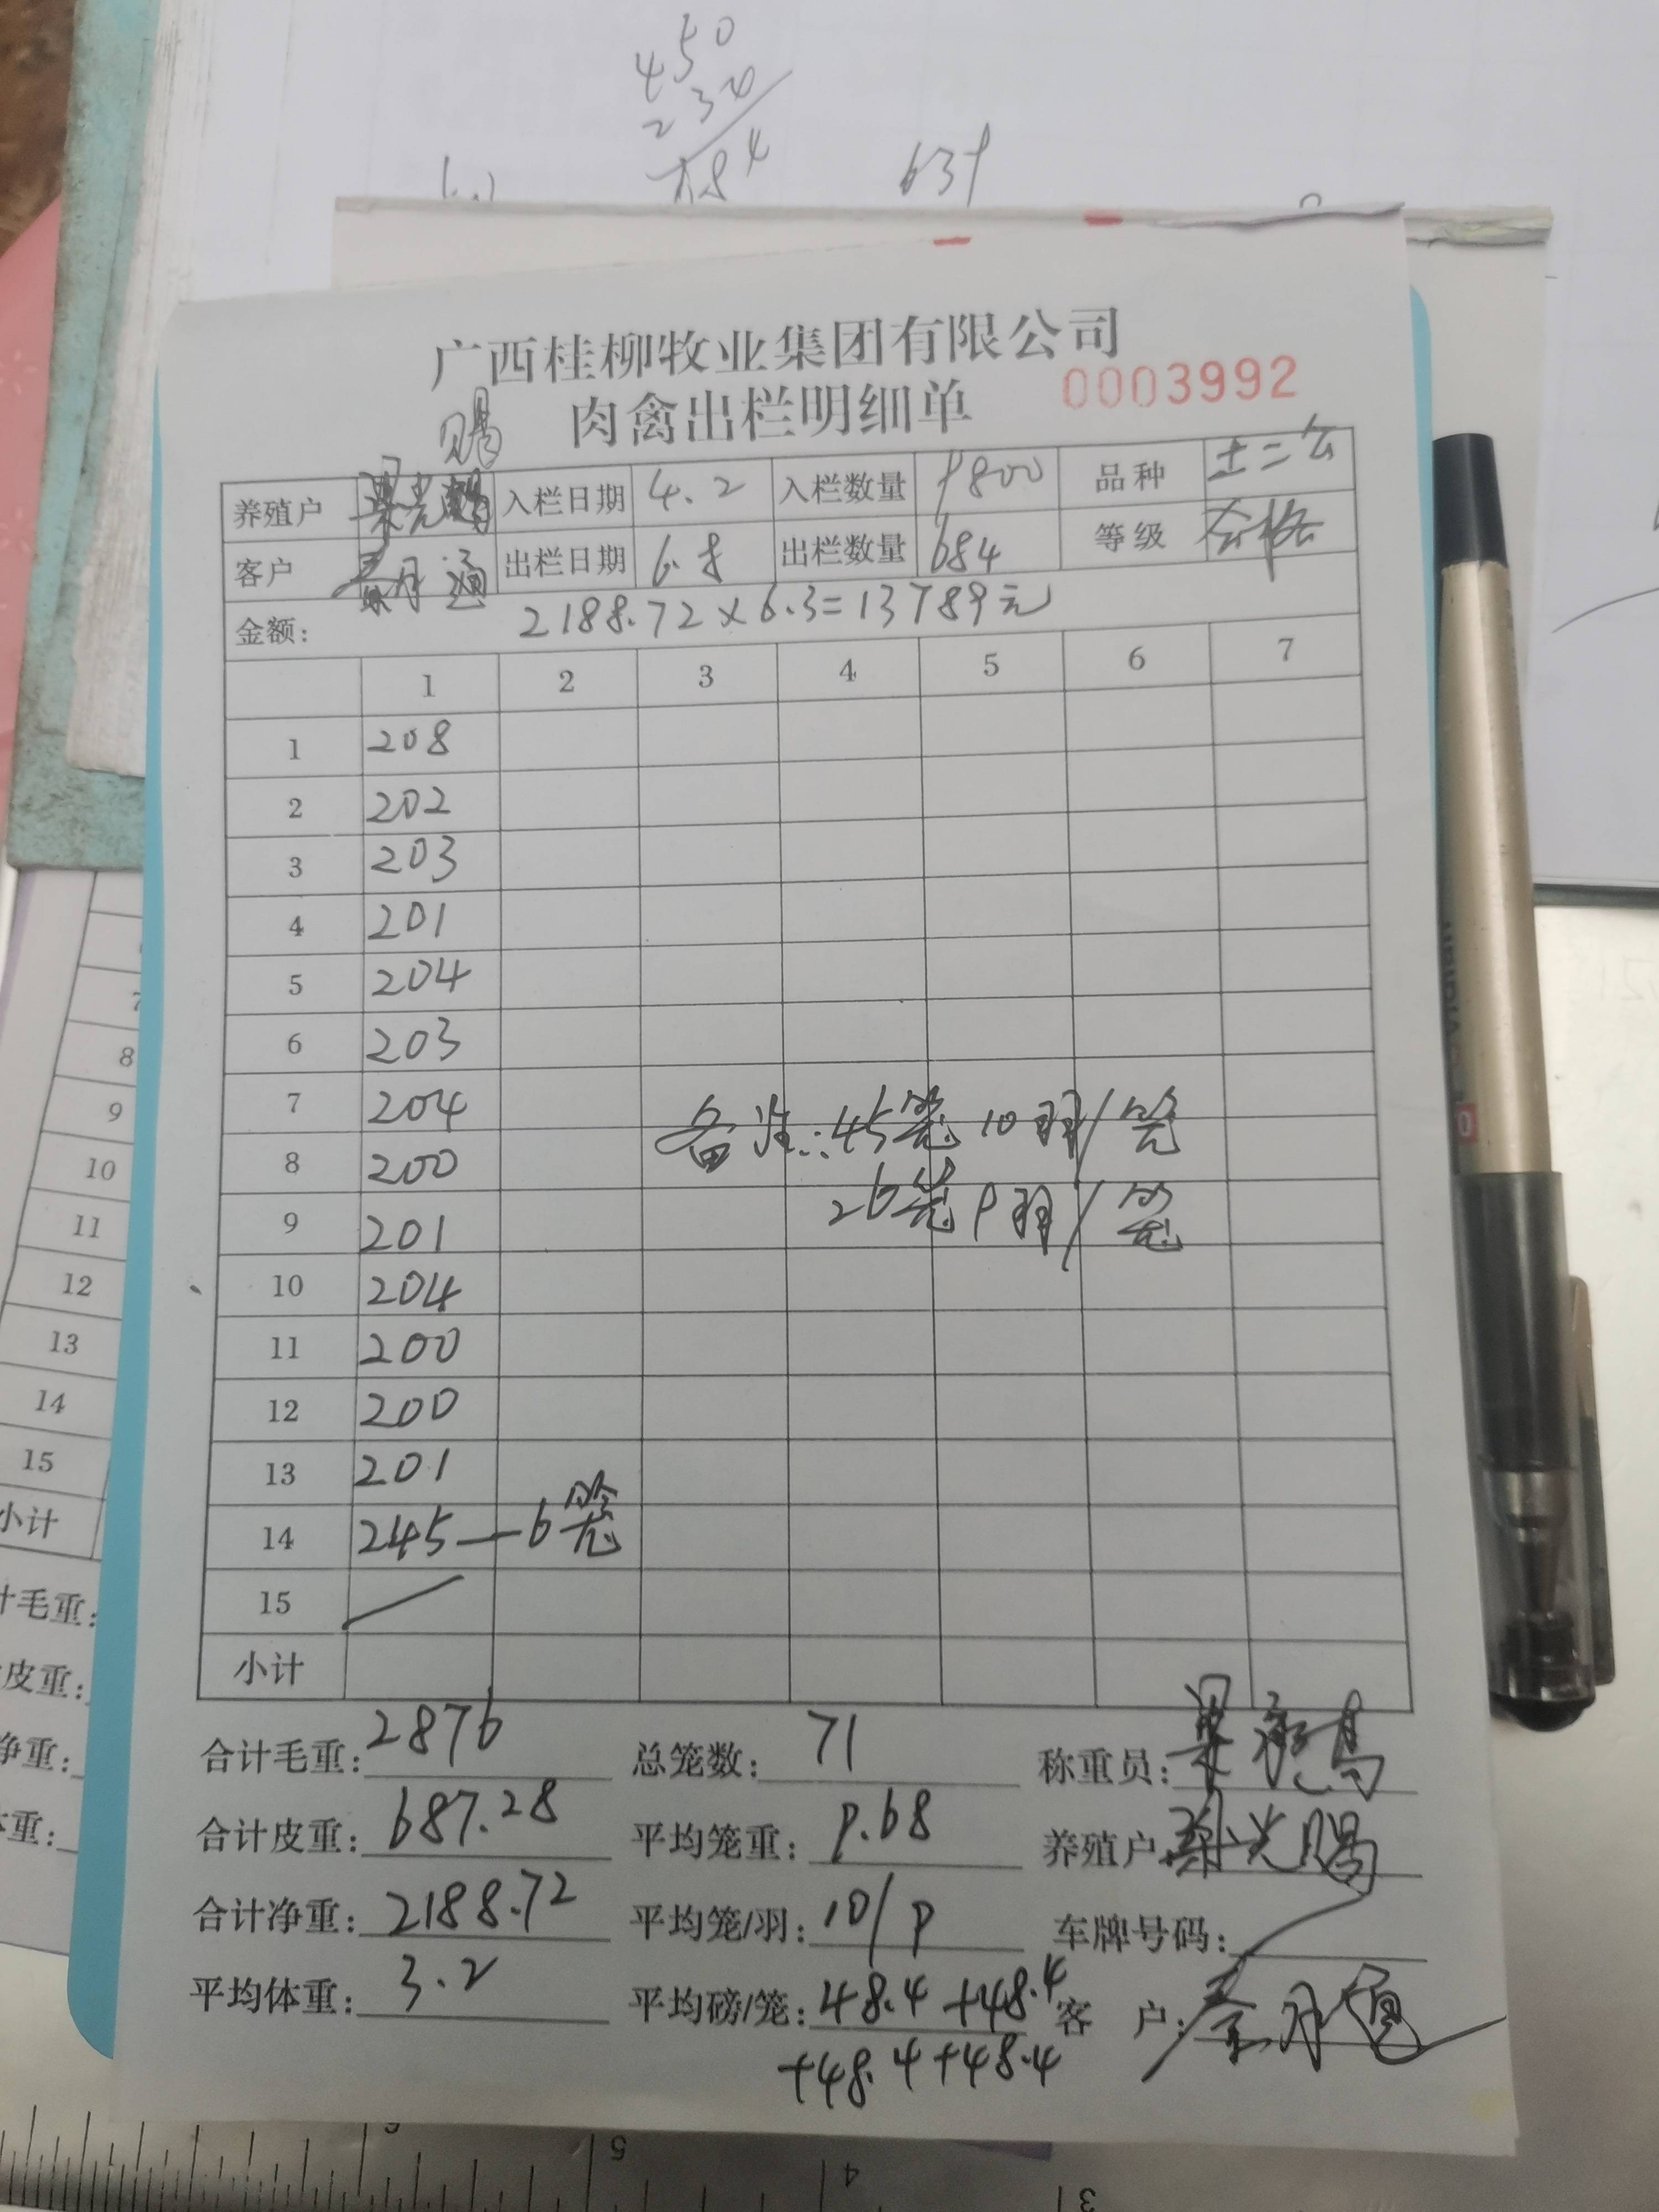 450
234
684
广西桂柳牧业集团有限公司
肉禽出栏明细单 0003992
赐
养殖户 梁光 入栏日期 4.2 入栏数量 9800 品种 土二公
客户 秦月通 出栏日期 6.8 出栏数量 684 等级 合格
金额: 2188.72×6.3=13789元
1 2 3 4 5 6 7
1 208
2 202
3 203
4 201
5 204
6 203
7 204
8 200
9 201
10 204
11 200
12 200
13 201
14 245—6笼
15
小计
备注:45笼10羽/笼
26笼9羽/笼
合计毛重: 2876 总笼数: 71 称重员:
合计皮重: 687.28 平均笼重: 9.68 养殖户: 梁光赐
合计净重: 2188.72 平均笼/羽: 10/9 车牌号码:
平均体重: 3.2 平均磅/笼: 48.4+48.4 客 户: 秦月通
+48.4+48.4
7
8
9
10
11
12
13
14
15
小计
计毛重:
皮重:
净重:
体重:
6 5 4 3